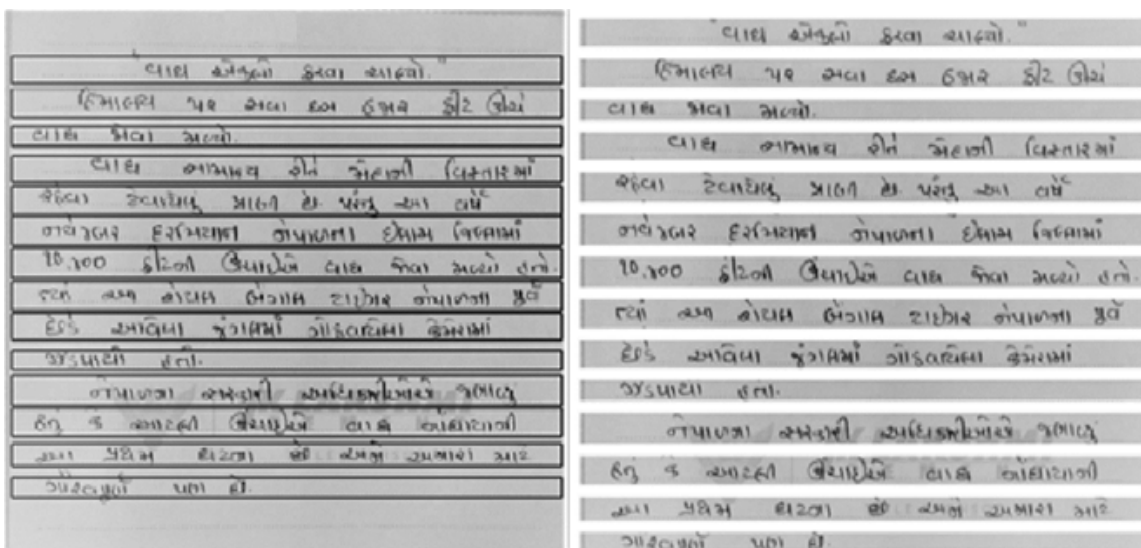 "વાઘ એકલો ફરવા ચાલ્યો."
હિમાલય પર સવા દસ હજાર ફીટ ઊંચે
વાઘ જોવા મળ્યો.
વાઘ સામાન્ય રીતે મેદાની વિસ્તારમાં
રહેવા ટેવાયેલું પ્રાણી છે. પરંતુ આ વર્ષે
નવેમ્બર દરમિયાન નેપાળના ઈલામ જિલ્લામાં
૧૦,૪૦૦ ફીટની ઊંચાઈએ વાઘ જોવા મળ્યો હતો.
ત્યાં આ રોયલ બંગાળ ટાઈગર નેપાળના પૂર્વ
છેડે આવેલા જંગલમાં ગોઠવાયેલા કેમેરામાં
ઝડપાયો હતો.
નેપાળના સરકારી અધિકારીઓએ જણાવ્યું
હતું કે આટલી ઊંચાઈએ વાઘ નોંધાયાની
આ પ્રથમ ઘટના છે અને અમારા માટે
ગૌરવપૂર્ણ પણ છે.
"વાઘ એકલો ફરવા ચાલ્યો."
હિમાલય પર સવા દસ હજાર ફીટ ઊંચે
વાઘ જોવા મળ્યો.
વાઘ સામાન્ય રીતે મેદાની વિસ્તારમાં
રહેવા ટેવાયેલું પ્રાણી છે. પરંતુ આ વર્ષે
નવેમ્બર દરમિયાન નેપાળના ઈલામ જિલ્લામાં
૧૦,૪૦૦ ફીટની ઊંચાઈએ વાઘ જોવા મળ્યો હતો.
ત્યાં આ રોયલ બંગાળ ટાઈગર નેપાળના પૂર્વ
છેડે આવેલા જંગલમાં ગોઠવાયેલા કેમેરામાં
ઝડપાયો હતો.
નેપાળના સરકારી અધિકારીઓએ જણાવ્યું
હતું કે આટલી ઊંચાઈએ વાઘ નોંધાયાની
આ પ્રથમ ઘટના છે અને અમારા માટે
ગૌરવપૂર્ણ પણ છે.